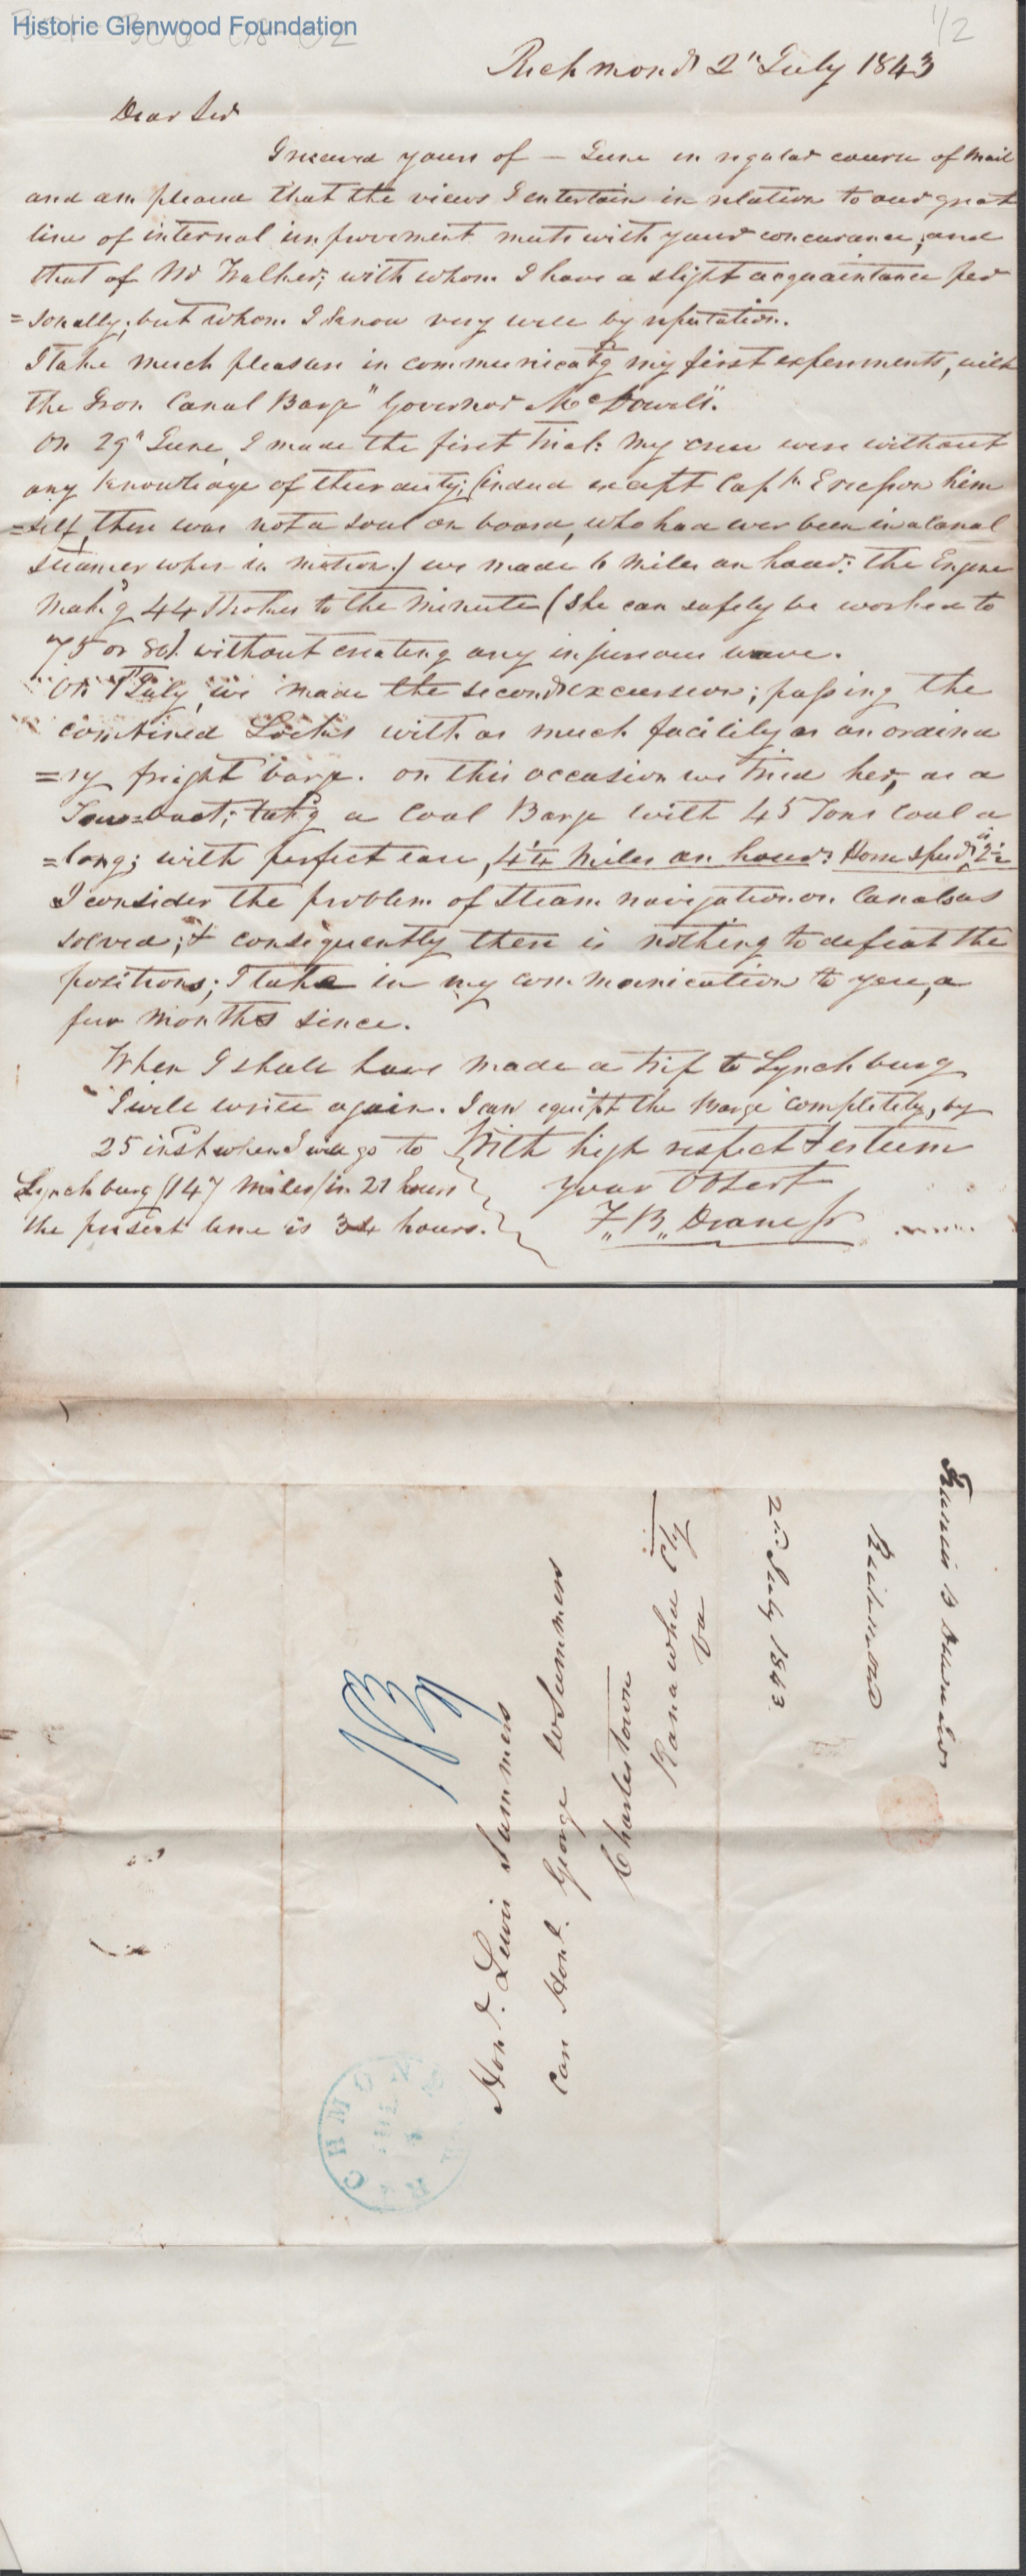 Historic Glenwood Foundation
1/2
Richmond 2d July 1843
Dear Sir
I received yours of — June in regular course of mail
and am pleased that the views I entertain in relation to our great
line of internal improvement meets with your concurance; and
that of Mr Walker; with whom I have a slight acquaintance per
=sonally; but whom I know very well by reputation.
I take much pleasure in communicatg my first experiments, with
the Iron Canal Barge "Governor McDowell".
On 29th June, I made the first trial: my crew were without
any knowledge of their duty; (indeed except Capt Ericsson him
=self, there was not a soul on board, who had ever been in a canal
steamer when in motion.) we made 6 miles an hour: the Engine
makg 44 strokes to the minute (she can safely be worked to
75 or 80) without creating any injurious wave.
On 1st July, we made the second excursion; passing the
combined Locks with as much facility as an ordina
=ry freight barge. on this occasion we tried her, as a
Tow=boat; takg a Coal Barge with 45 Tons Coal a
=long; with perfect ease, 4 1/4 miles an hour: Horse speed, is 2 1/2
I consider the problem of steam navigation on Canals as
solved; & consequently there is nothing to defeat the
positions; I take in my communication to you, a
few months since.
When I shall have made a trip to Lynchburg
I will write again. I can equipt the Barge completely, by
25 inst when I will go to
Lynchburg (147 miles) in 21 hours
the present time is 34 hours.
With high respect & esteem
your Obt sert
F,,B,, Deane Jr
Francis B Deane Jr
Richmond
2nd July 1843
Hond. Lewis Summers
Care Hond. George W Summers
Charlestown
Kanawha Cty
Va
RICHMOND
JUL